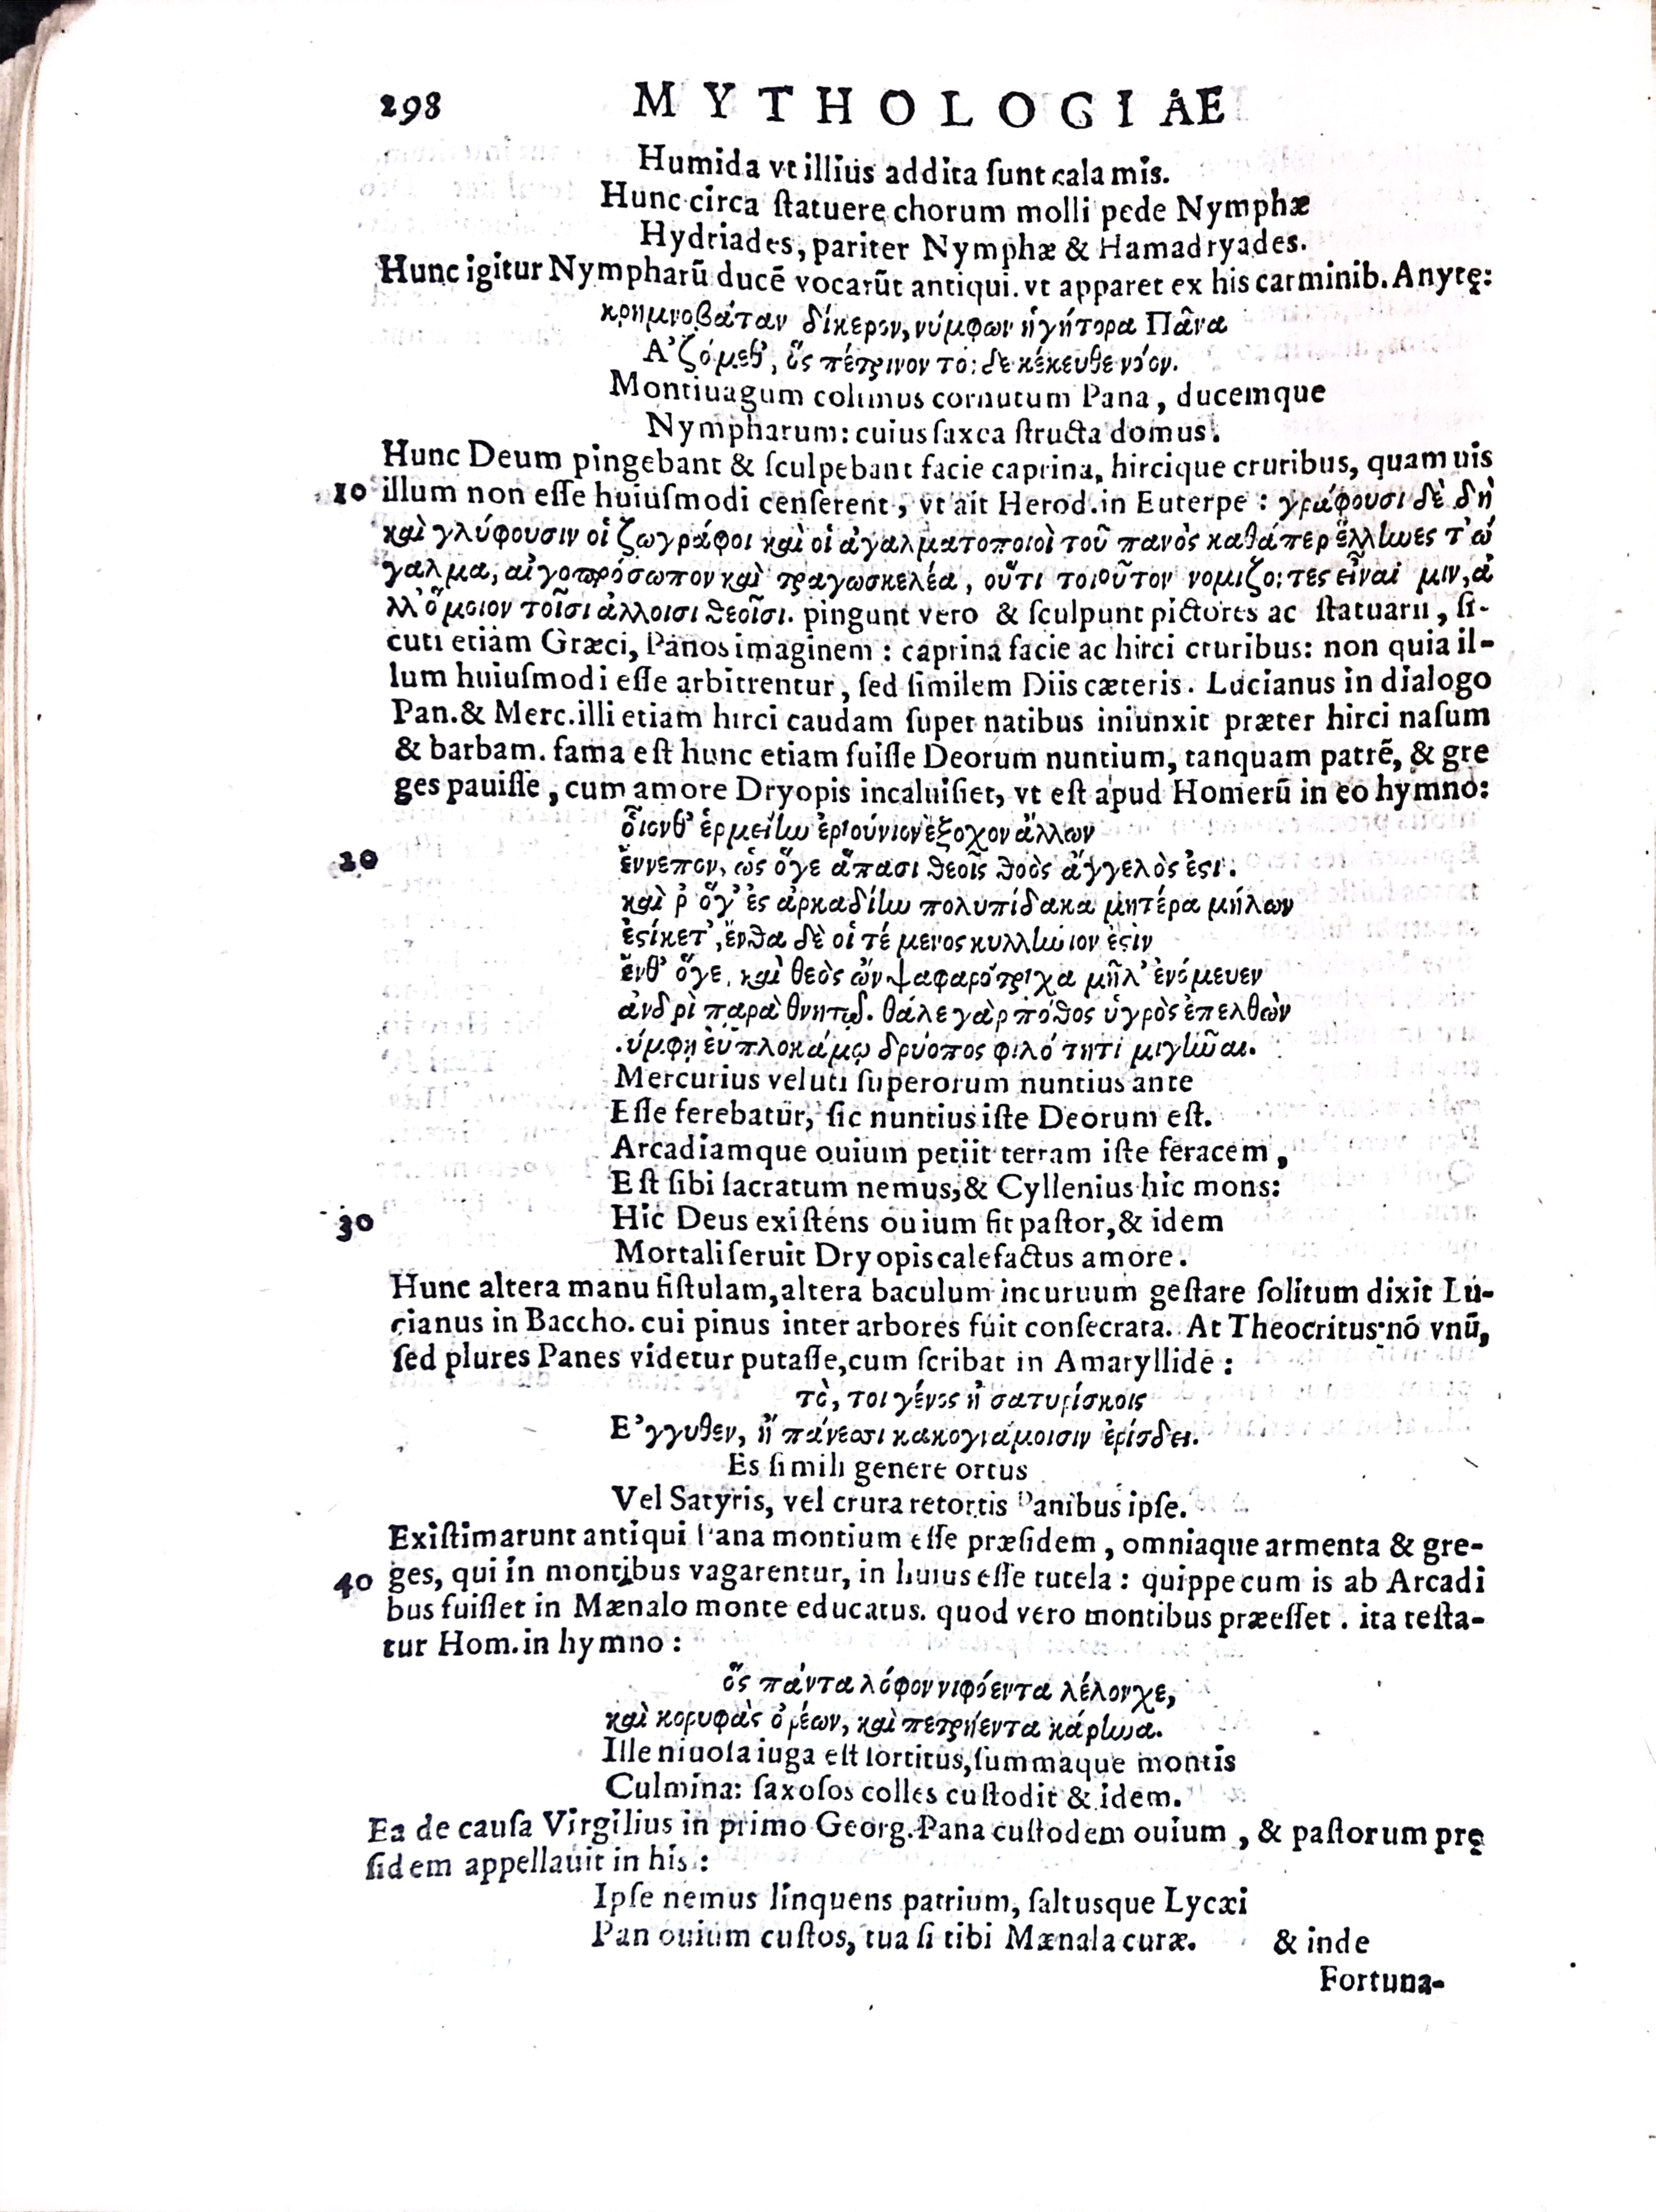 298 MYTHOLOGIAE
Humida vt illius addita ſunt calamis.
Hunc circa ſtatuere chorum molli pede Nymphæ
Hydriades, pariter Nymphæ & Hamadryades.
Hunc igitur Nympharũ ducẽ vocarũt antiqui. vt apparet ex his carminib. Anytę:
κρημνοβάταν δίκερον, νύμφων ἡγήτορα Πᾶνα
Α'ζόμεθ', ὃς πέτρινον τό: δε κέκευθε νόον.
Montiuagum colimus cornutum Pana, ducemque
Nympharum: cuius ſaxea ſtructa domus.
Hunc Deum pingebant & ſculpebant facie caprina, hircique cruribus, quam uis
10 illum non eſſe huiuſmodi cenſerent, vt ait Herod. in Euterpe : γράφουσι δὲ δὴ
καὶ γλύφουσιν οἱ ζωγράφοι καὶ οἱ ἀγαλματοποιοὶ τοῦ πανὸς καθάπερ ἕλλωες τ'ὠ
γαλμα, αἰγοπρόσωπον καὶ τραγωσκελέα, οὔτι τοιοῦτον νομιζο: τες εἶναί μιν, ἀ
λλ' ὅμοιον τοῖσι ἄλλοισι θεοῖσι. pingunt vero & ſculpunt pictores ac ſtatuarii, ſi-
cuti etiam Græci, Panos imaginem : caprina facie ac hirci cruribus: non quia il-
lum huiuſmodi eſſe arbitrentur, ſed ſimilem Diis cæteris. Lucianus in dialogo
Pan. & Merc. illi etiam hirci caudam ſuper natibus iniunxit præter hirci naſum
& barbam. fama eſt hunc etiam fuiſſe Deorum nuntium, tanquam patrẽ, & gre
ges pauiſſe, cum amore Dryopis incaluiſſet, vt eſt apud Homerũ in eo hymno:
οἷονθ' ἑρμείlω ἐριούνιον ἔξοχον ἄλλων
20 ἔννεπον, ὡς ὅγε ἅπασι θεοῖς θοὸς ἄγγελός ἐςι.
καὶ ῥ ὅγ' ἐς ἀρκαδίlω πολυπίδακα μητέρα μήλων
ἐςίκετ', ἔνθα δὲ οἱ τέ μενος κυλλlωίον ἐςὶν
ἔνθ' ὅγε, καὶ θεὸς ὢν ψαφαρότριχα μῆλ' ἐνόμευεν
ἀνδρὶ παρὰ θνητῳ. θάλε γὰρ πόθος ὑγρὸς ἐπελθὼν
.ύμφῃ ἐυπλοκάμῳ δρύοπος φιλότητι μιγlῶαι.
Mercurius veluti ſuperorum nuntius ante
Eſſe ferebatur, ſic nuntius iſte Deorum eſt.
Arcadiamque ouium petiit terram iſte feracem,
Eſt ſibi ſacratum nemus, & Cyllenius hic mons:
30 Hic Deus exiſtens ouium fit paſtor, & idem
Mortali ſeruit Dryopis calefactus amore.
Hunc altera manu fiſtulam, altera baculum incuruum geſtare ſolitum dixit Lu-
cianus in Baccho. cui pinus inter arbores fuit conſecrata. At Theocritus nõ vnũ,
ſed plures Panes videtur putaſſe, cum ſcribat in Amaryllide :
τὸ, τοι γένος ἢ σατυρίσκοις
Ε'γγυθεν, ἢ πάνεσσι κακογνάμοισιν ἐρίσδει.
Es ſimili genere ortus
Vel Satyris, vel crura retortis Panibus ipſe.
Exiſtimarunt antiqui Pana montium eſſe præſidem, omniaque armenta & gre-
40 ges, qui in montibus vagarentur, in huius eſſe tutela : quippe cum is ab Arcadi
bus fuiſſet in Mænalo monte educatus. quod vero montibus præeſſet. ita teſta-
tur Hom. in hymno :
ὃς πάντα λόφον νιφόεντα λέλονχε,
καὶ κορυφὰς ὀρέων, καὶ πετρήεντα κάρlωα.
Ille niuoſa iuga eſt ſortitus, ſummaque montis
Culmina: ſaxoſos colles cuſtodit & idem.
Ea de cauſa Virgilius in primo Georg. Pana cuſtodem ouium, & paſtorum prę
ſidem appellauit in his :
Ipſe nemus linquens patrium, ſaltusque Lycæi
Pan ouium cuſtos, tua ſi tibi Mænala curæ. & inde
Fortuna-